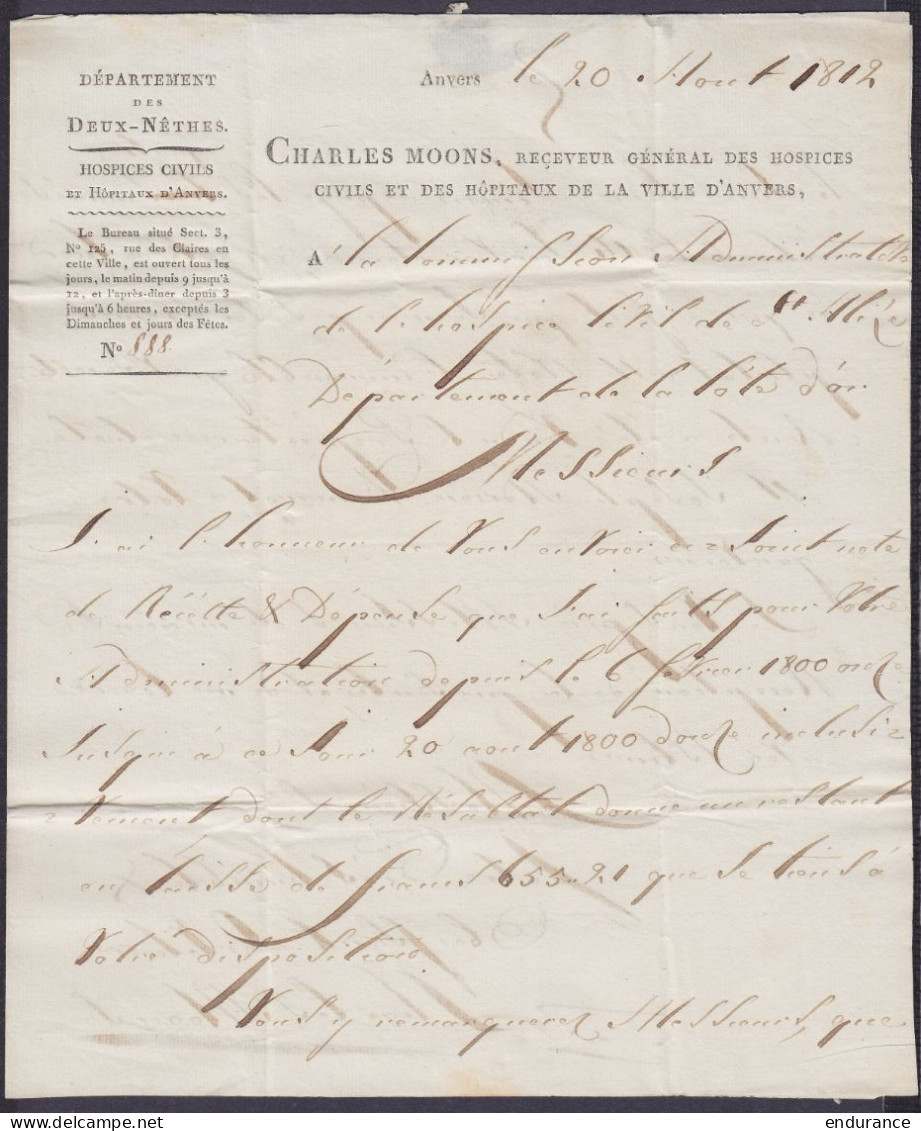 DÉPARTEMENT
DES
DEUX-NÊTHES.
HOSPICES CIVILS
ET HÔPITAUX D'ANVERS.
Le Bureau situé Sect. 3,
N° 125, rue des Claires en
cette Ville, est ouvert tous les
jours, le matin depuis 9 jusqu'à
12, et l'après-dîner depuis 3
jusqu'à 6 heures, exceptés les
Dimanches et jours des Fêtes.
N° 888.
Anvers le 20 Aout 1812
CHARLES MOONS, REÇEVEUR GÉNÉRAL DES HOSPICES
CIVILS ET DES HÔPITAUX DE LA VILLE D'ANVERS,
A la Commission Administrative
de l'hospice Civil de Ste
Département de la Côte d'or
Messieurs
J'ai l'honneur de Vous envoier ci=Joint note
de Récètte & Dépense que J'ai fait pour Votre
Administration depuis le 6 fevrier 1800 onze
Jusque à ce Jour 20 aout 1800 douze inclusi=
=Vement dont le Résultat donne un restant
en Caisse de francs 655-21 que je tiens à
Votre disposition
Vous y remarquerez Messieurs, que
endurance